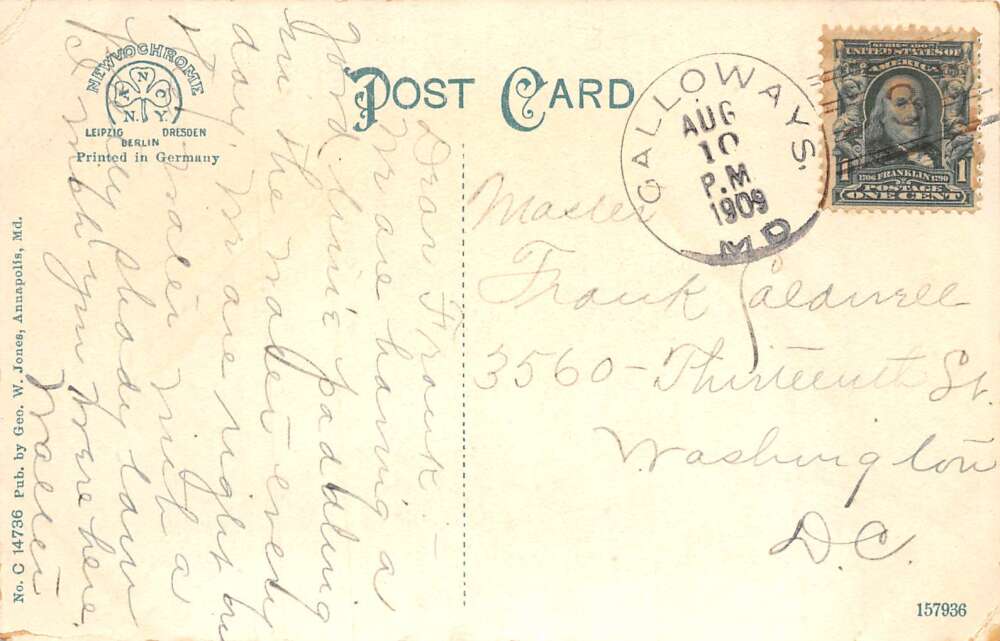 NEWVOCHROME
A N C O
N.Y.
LEIPZIG DRESDEN
BERLIN
Printed in Germany
POST CARD
GALLOWAYS.
AUG
10
P.M
1909
MD
SERIES 1902
UNITED STATES OF
AMERICA
1706 FRANKLIN 1790
1 POSTAGE 1
ONE CENT
Dear Frank –
We are having a
good time paddling
in the water every
day. We are right by
the water with a
very shady lawn
I wish you were here.
Walter
Master
Frank Caldwell
3560 – Thirteenth St.
Washington
D.C.
No. C 14736 Pub. by Geo. W. Jones, Annapolis, Md.
157936